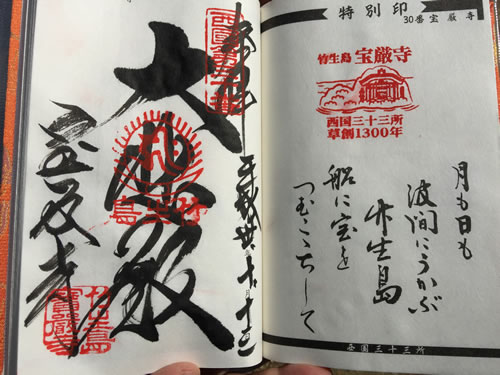 特別印
30番 宝厳寺
竹生島 宝厳寺
西国三十三所
草創1300年
月も日も
波間にうかぶ
竹生島
船に宝を
つむここちして
西国三十三所
奉拝
平成
西國第三十番
大悲殿
竹生島
宝厳寺
竹生島
寶嚴寺